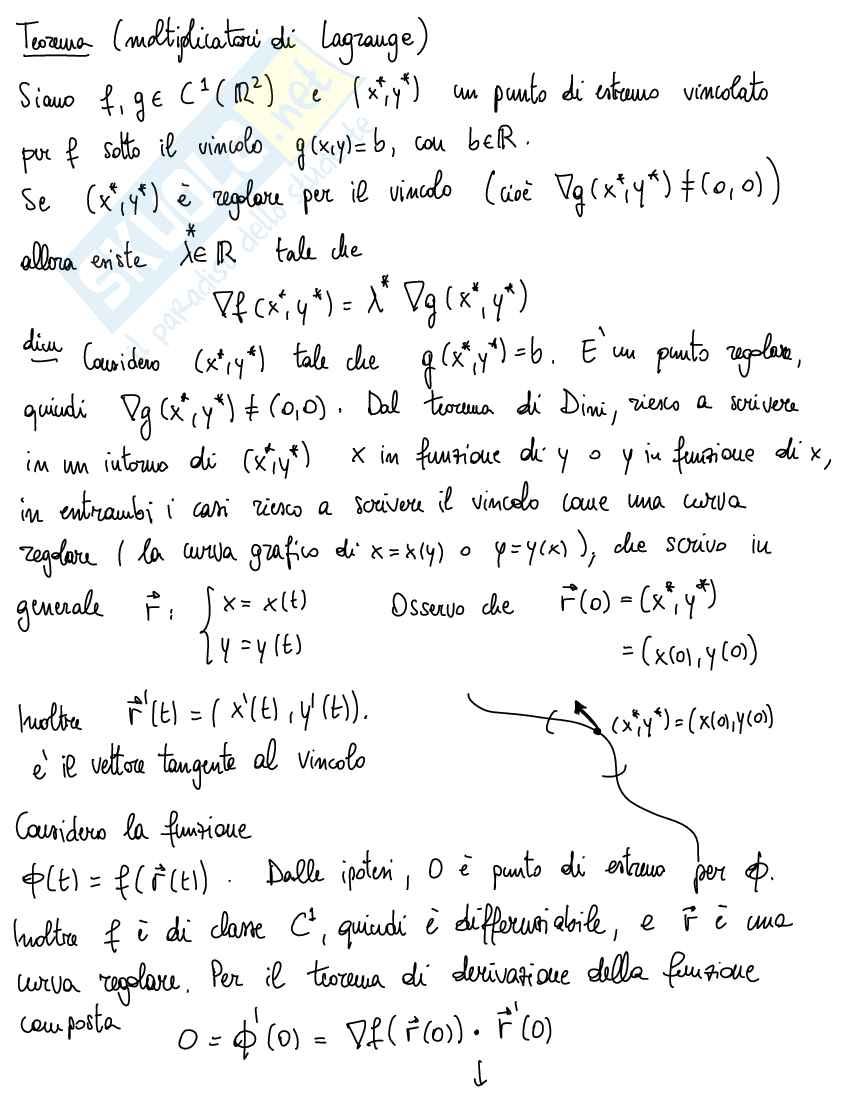 Teorema (moltiplicatori di Lagrange)
Siano f, g ∈ C¹(ℝ²) e (x*,y*) un punto di estremo vincolato
per f sotto il vincolo g(x,y)=b, con b∈ℝ.
Se (x*,y*) è regolare per il vincolo (cioè ∇g(x*,y*) ≠ (0,0))
allora esiste λ*∈ℝ tale che
∇f(x*,y*) = λ* ∇g(x*,y*)
dim Considero (x*,y*) tale che g(x*,y*)=b. E' un punto regolare,
quindi ∇g(x*,y*) ≠ (0,0). Dal teorema di Dini, riesco a scrivere
in un intorno di (x*,y*) x in funzione di y o y in funzione di x,
in entrambi i casi riesco a scrivere il vincolo come una curva
regolare (la curva grafico di x=x(y) o y=y(x)), che scrivo in
generale r⃗: { x = x(t) Osservo che r⃗(0) = (x*,y*)
y = y(t) = (x(0), y(0))
Inoltre r⃗'(t) = (x'(t), y'(t)). (x*,y*) = (x(0), y(0))
e' il vettore tangente al vincolo
Considero la funzione
ϕ(t) = f(r⃗(t)). Dalle ipotesi, 0 è punto di estremo per ϕ.
Inoltre f è di classe C¹, quindi è differenziabile, e r⃗ è una
curva regolare. Per il teorema di derivazione della funzione
composta 0 = ϕ'(0) = ∇f(r⃗(0)) · r⃗'(0)
↓
SKUOLA.net
il paradiso dello studente